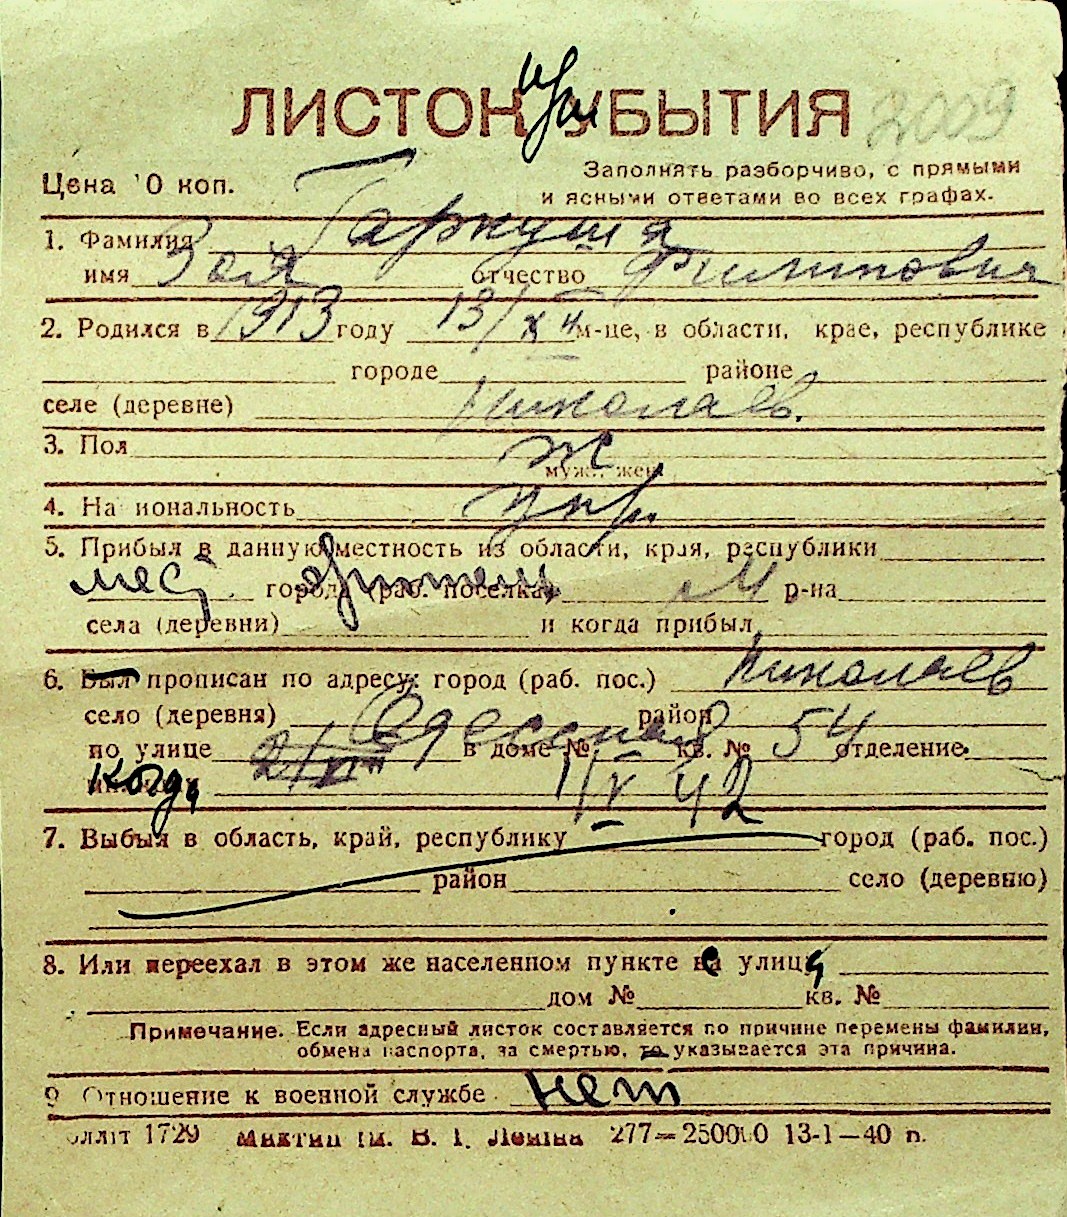 при
ЛИСТОК УБЫТИЯ 2009
Цена 10 коп. Заполнять разборчиво, с прямыми
и ясными ответами во всех графах.
1. Фамилия Гаркуша
имя Зоя отчество Филипповна
2. Родился в 1913 году 13/XII м-це, в области, крае, республике
городе районе
селе (деревне) Николаев.
3. Пол Ж
муж., жен.
4. Национальность укр.
5. Прибыл в данную местность из области, края, республики
мест. города (раб. поселка) р-на
села (деревни) и когда прибыл
6. Был прописан по адресу: город (раб. пос.) Николаев
село (деревня) район
по улице Одесская в доме № кв. № 54 отделение
когда 1/V 42
7. Выбыл в область, край, республику город (раб. пос.)
район село (деревню)
8. Или переехал в этом же населенном пункте с улицы
дом № кв. №
Примечание. Если адресный листок составляется по причине перемены фамилии,
обмена паспорта, за смертью, то указывается эта причина.
9 Отношение к военной службе нет
1729 им. В. І. Леніна 277—250000 13-1—40 р.